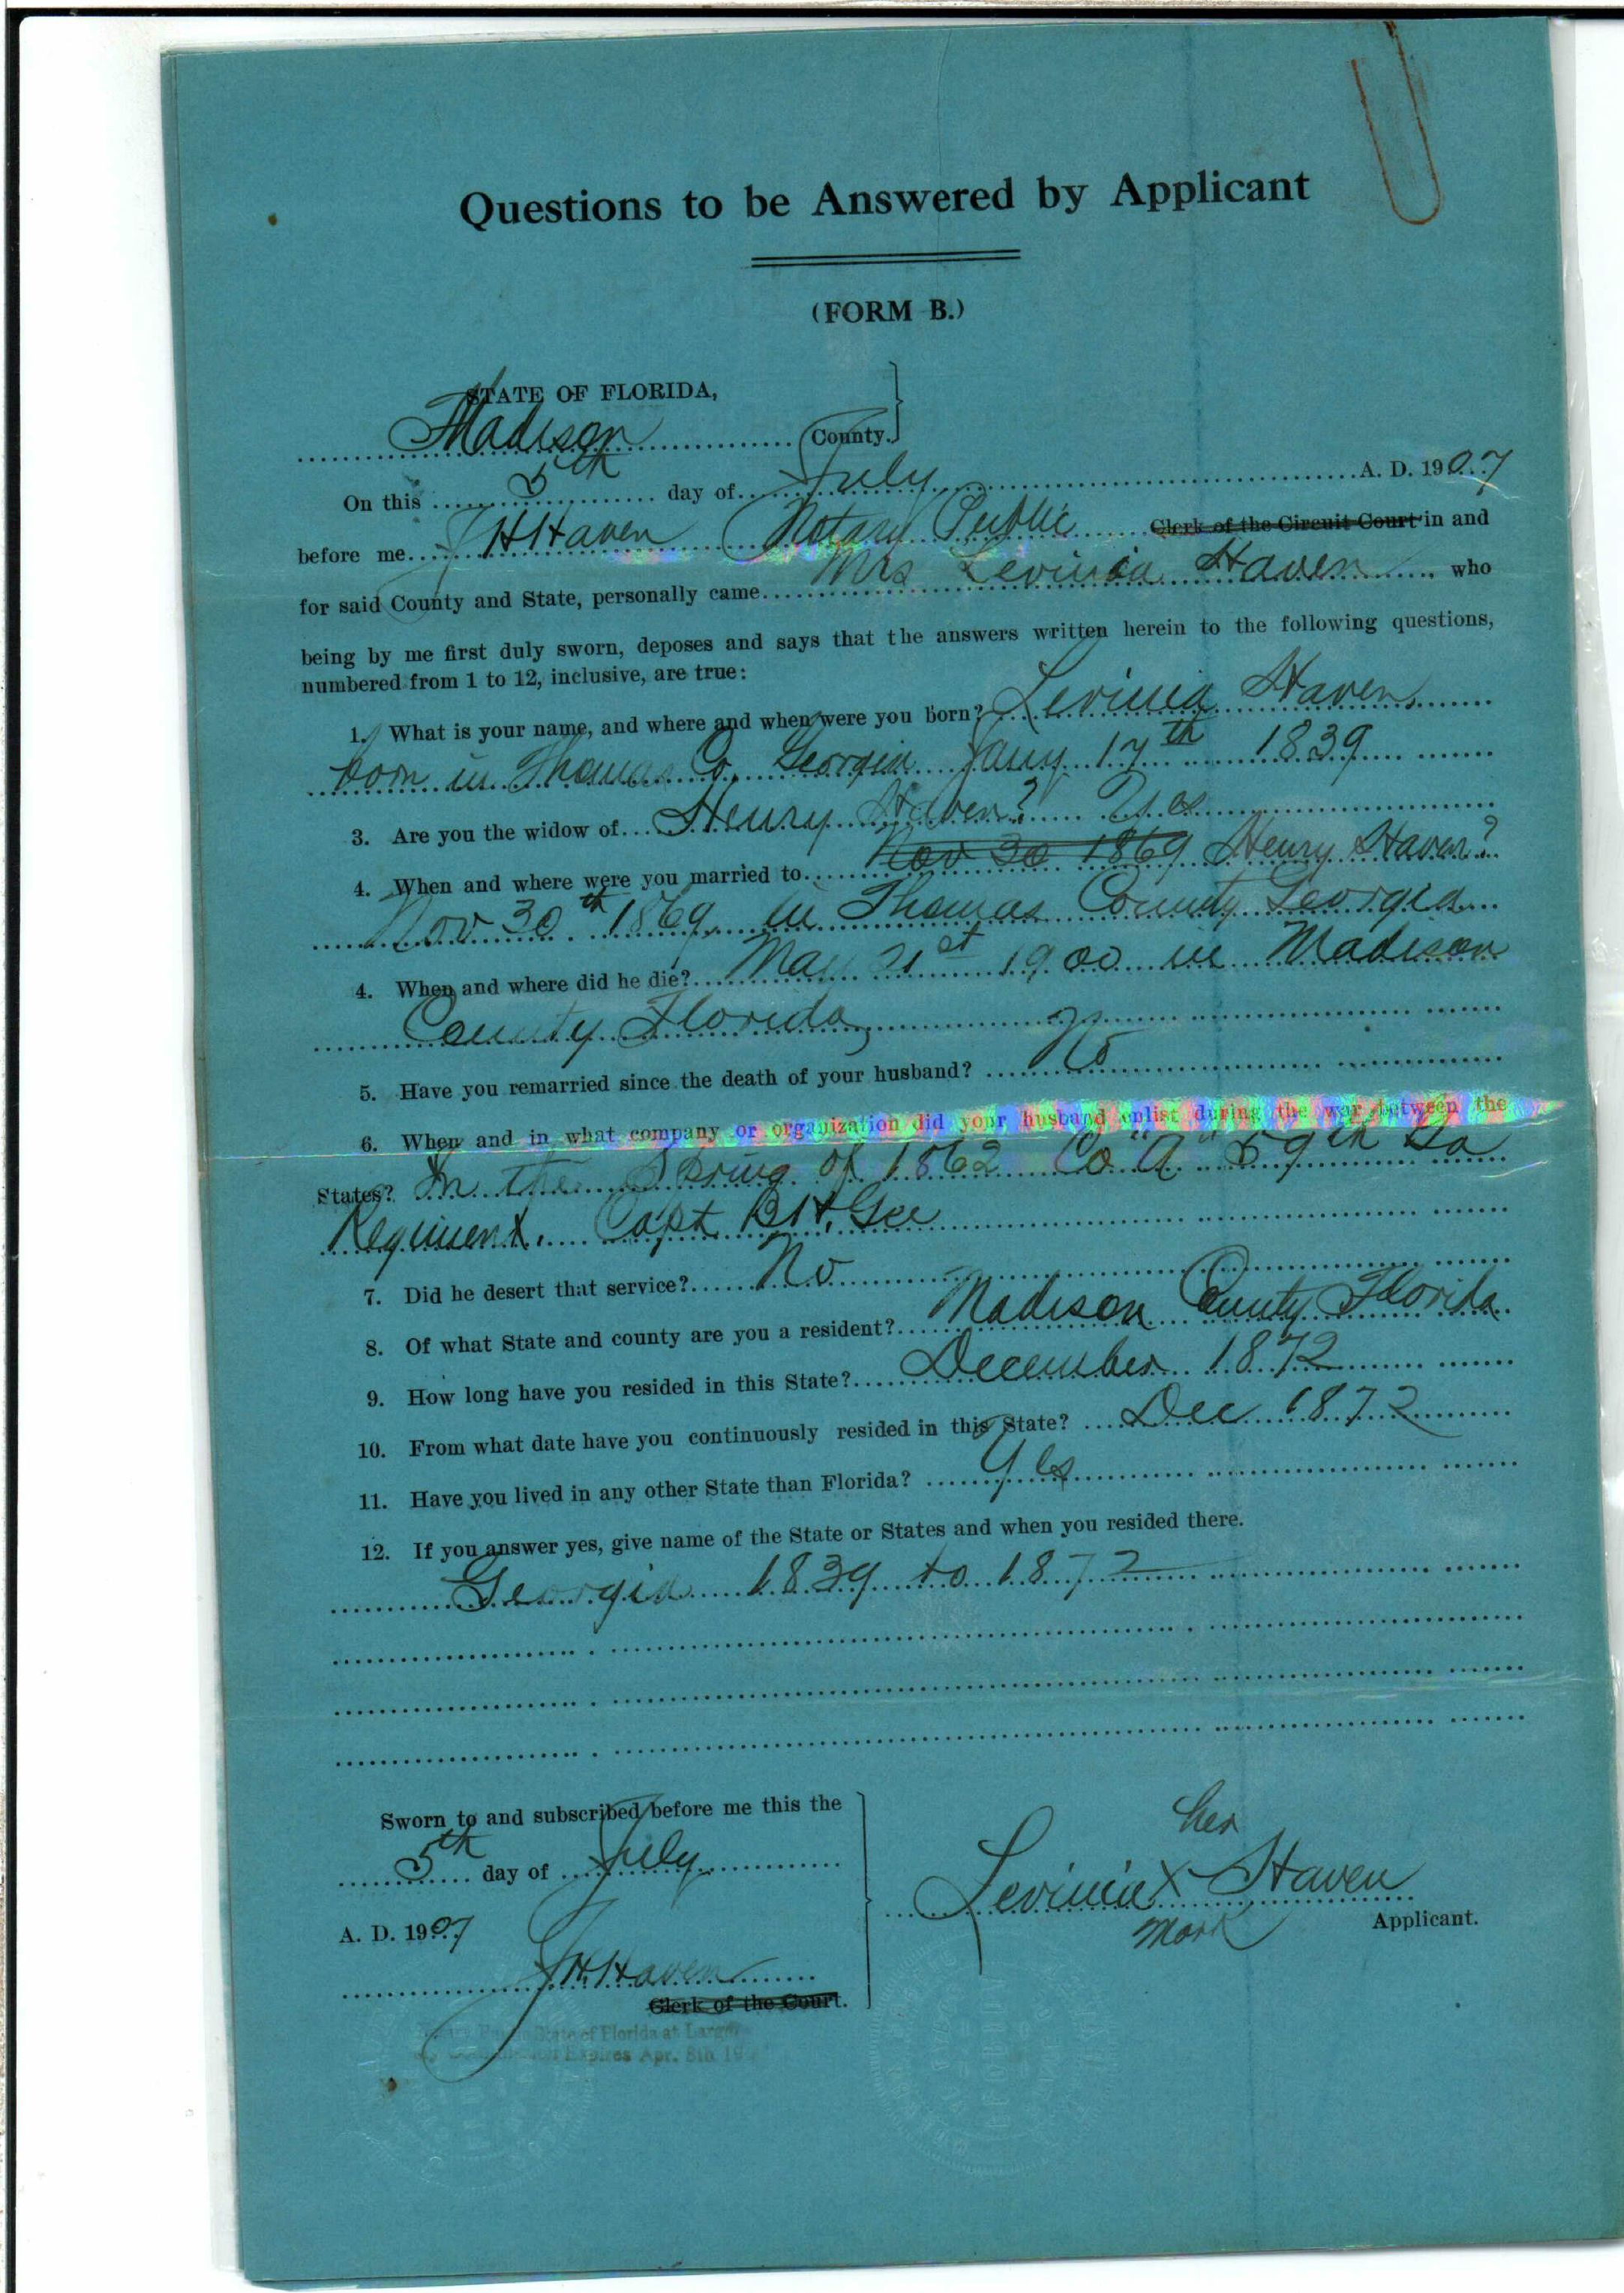 Questions to be Answered by Applicant
(FORM B.)
STATE OF FLORIDA,
Madison County.
On this 5th day of July A. D. 1907
before me J H Haven Notary Public Clerk of the Circuit Court in and
for said County and State, personally came Mrs Levinia Haven, who
being by me first duly sworn, deposes and says that the answers written herein to the following questions,
numbered from 1 to 12, inclusive, are true:
1. What is your name, and where and when were you born? Levinia Haven
born in Thomas Co. Georgia Jany 17th 1839
3. Are you the widow of Henry Haven? Yes
4. When and where were you married to Nov 30 1869 Henry Haven?
Nov 30th 1869 in Thomas County Georgia
4. When and where did he die? May 21st 1900 in Madison
County Florida
5. Have you remarried since the death of your husband? No
6. When and in what company or organization did your husband enlist during the war between the
States? In the Spring of 1862 Co "A" 59th Ga
Regiment. Capt B H. Gee
7. Did he desert that service? No
8. Of what State and county are you a resident? Madison County Florida
9. How long have you resided in this State? December 1872
10. From what date have you continuously resided in this State? Dec 1872
11. Have you lived in any other State than Florida? Yes
12. If you answer yes, give name of the State or States and when you resided there.
Georgia 1839 to 1872
Sworn to and subscribed before me this the
5th day of July
A. D. 1907
J H Haven
Clerk of the Court.
State of Florida at Large
Expires Apr. 8th
her
Levinia X Haven
mark
Applicant.